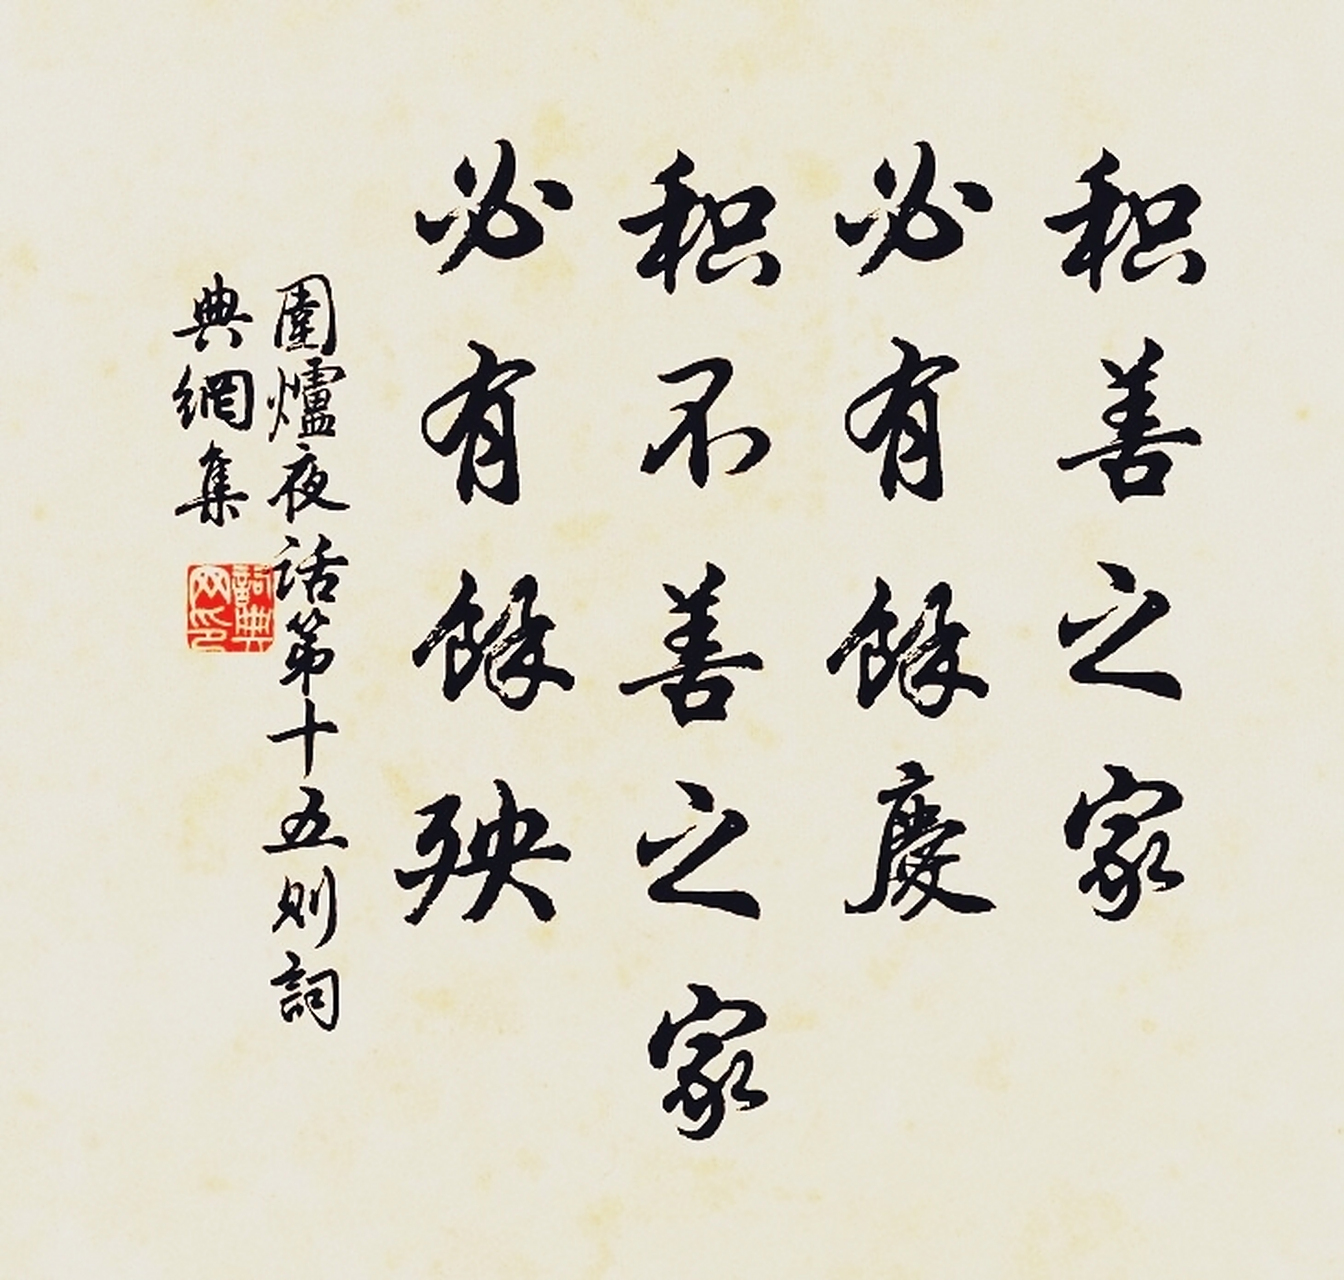 积善之家
必有餘慶
积不善之家
必有餘殃
圍爐夜話第十五則詞
典網集
詞典
网印